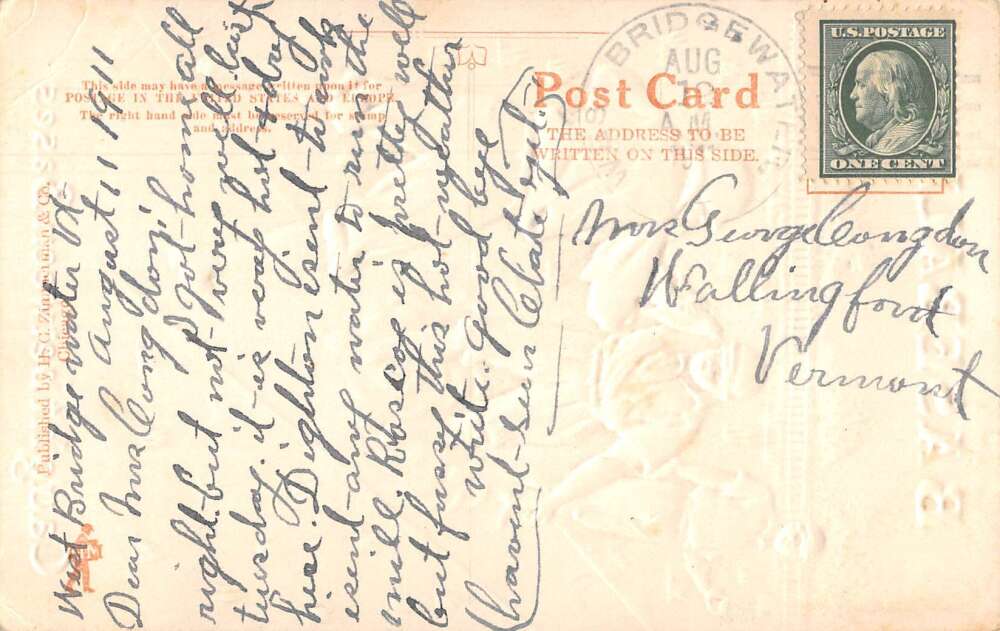 This side may have a message written upon it for
POSTAGE IN THE UNITED STATES AND EUROPE
The right hand side must be reserved for stamp
and address.
Post Card
THE ADDRESS TO BE
WRITTEN ON THIS SIDE.
BRIDGEWATER
AUG
A M
U.S. POSTAGE
ONE CENT
Mrs George Congdon
Wallingford
Vermont
West Bridgewater Vt
August 11 1911
Dear Mrs Congdon,
I got home all
right but not very well last
tuesday it is very hot dry
here. Dighton isent to work
esint any water to run the
mill. Roscoe is pretty well
but fuss this hot weather
write. good bye
(havint seen Clate yet.)
Published by H. G. Zimmerman & Co.
Chicago